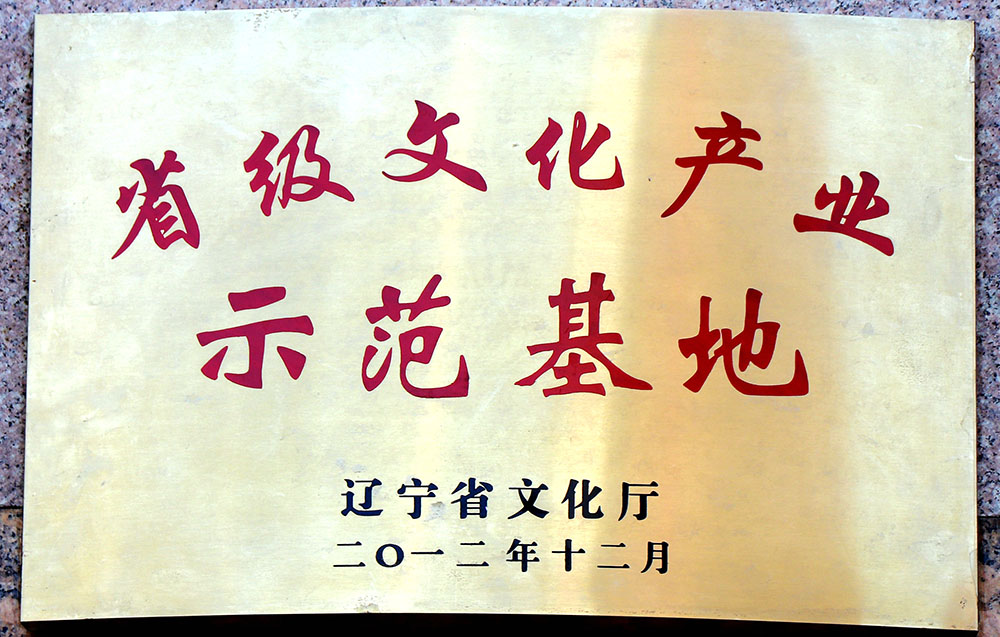 省级文化产业
示范基地
辽宁省文化厅
二〇一二年十二月